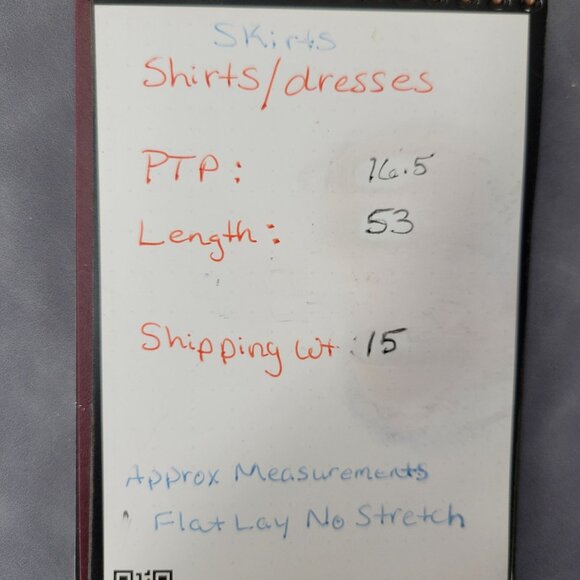 Skirts
Shirts/dresses
PTP: 16.5
Length: 53
Shipping Wt: 15
Approx Measurements
Flat Lay No Stretch